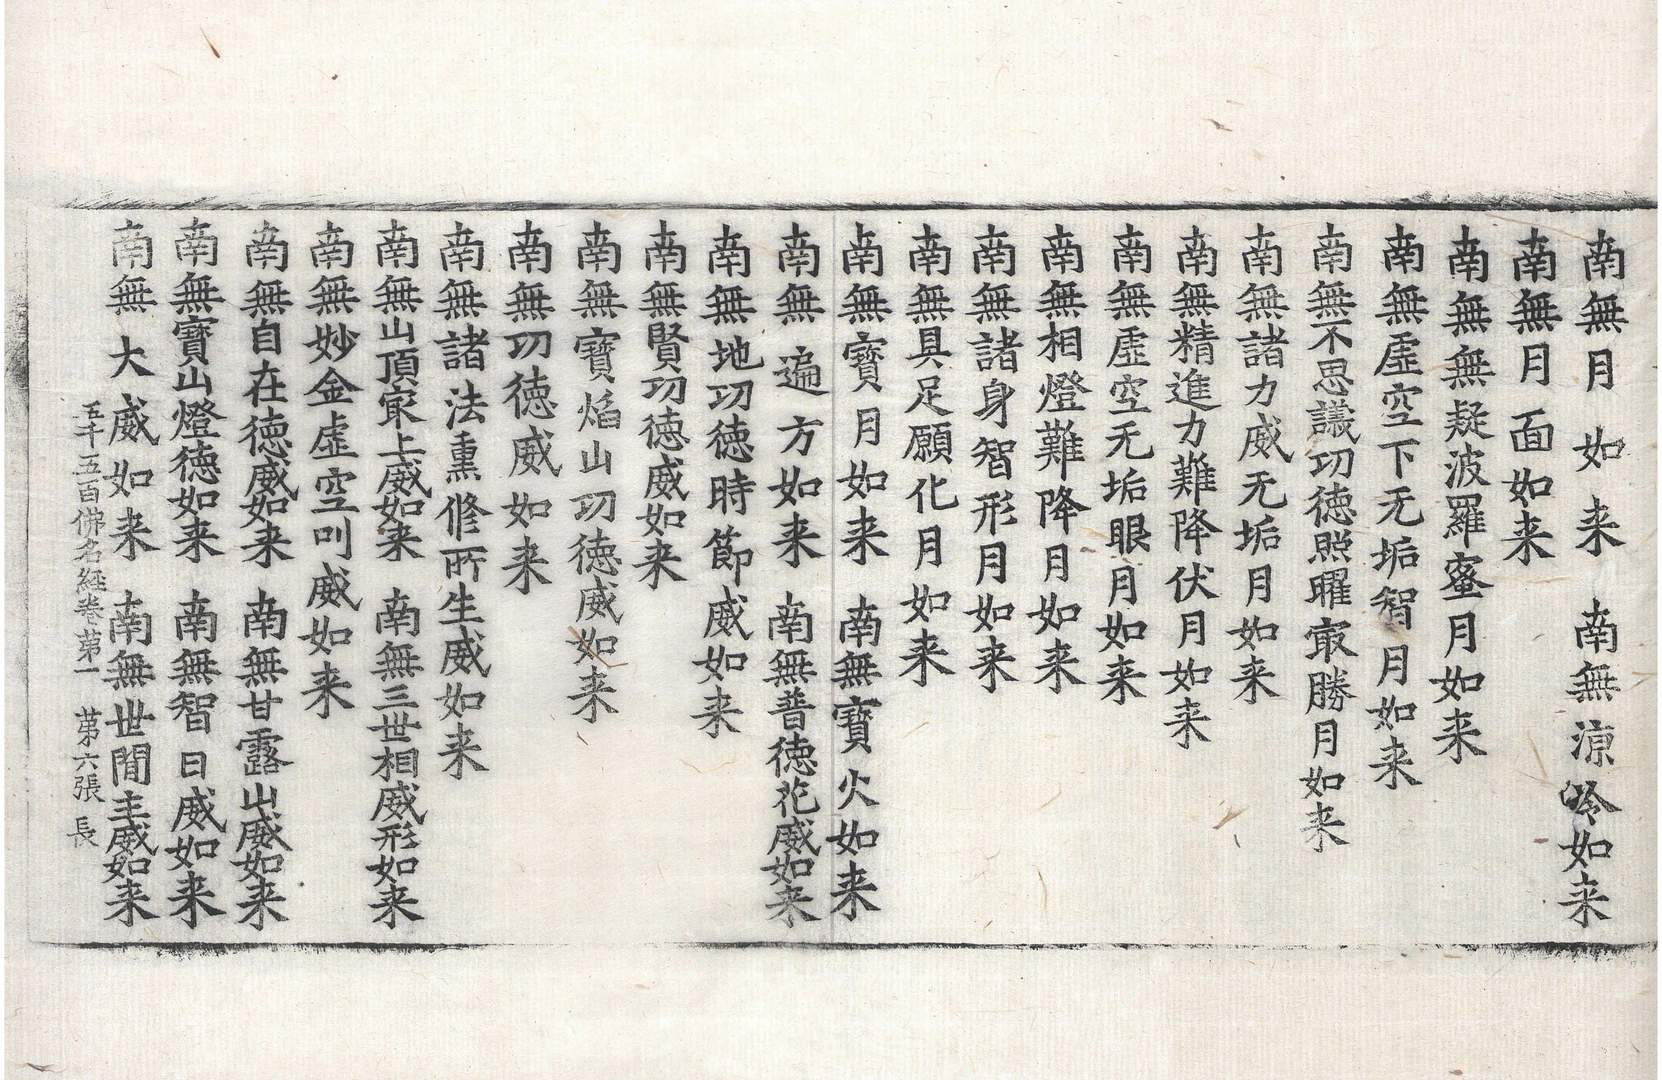 南無月如来 南無涼冷如来
南無月面如来
南無無疑波羅蜜月如来
南無虛空下无垢智月如来
南無不思議功徳照曜㝡勝月如来
南無諸力威无垢月如来
南無精進力難降伏月如来
南無虛空无垢眼月如来
南無相燈難降月如来
南無諸身智形月如来
南無具足願化月如来
南無寶月如来 南無寶火如来
南無遍方如来 南無普徳花威如来
南無地功徳時節威如来
南無賢功徳威如来
南無寶焰山功徳威如来
南無功徳威如来
南無諸法熏修所生威如来
南無山頂㝡上威如来 南無三世相威形如来
南無妙金虛空吼威如来
南無自在徳威如来 南無甘露山威如来
南無寶山燈徳如来 南無智日威如来
南無大威如来 南無世間主威如来
五千五百佛名経卷苐一 苐六張 長